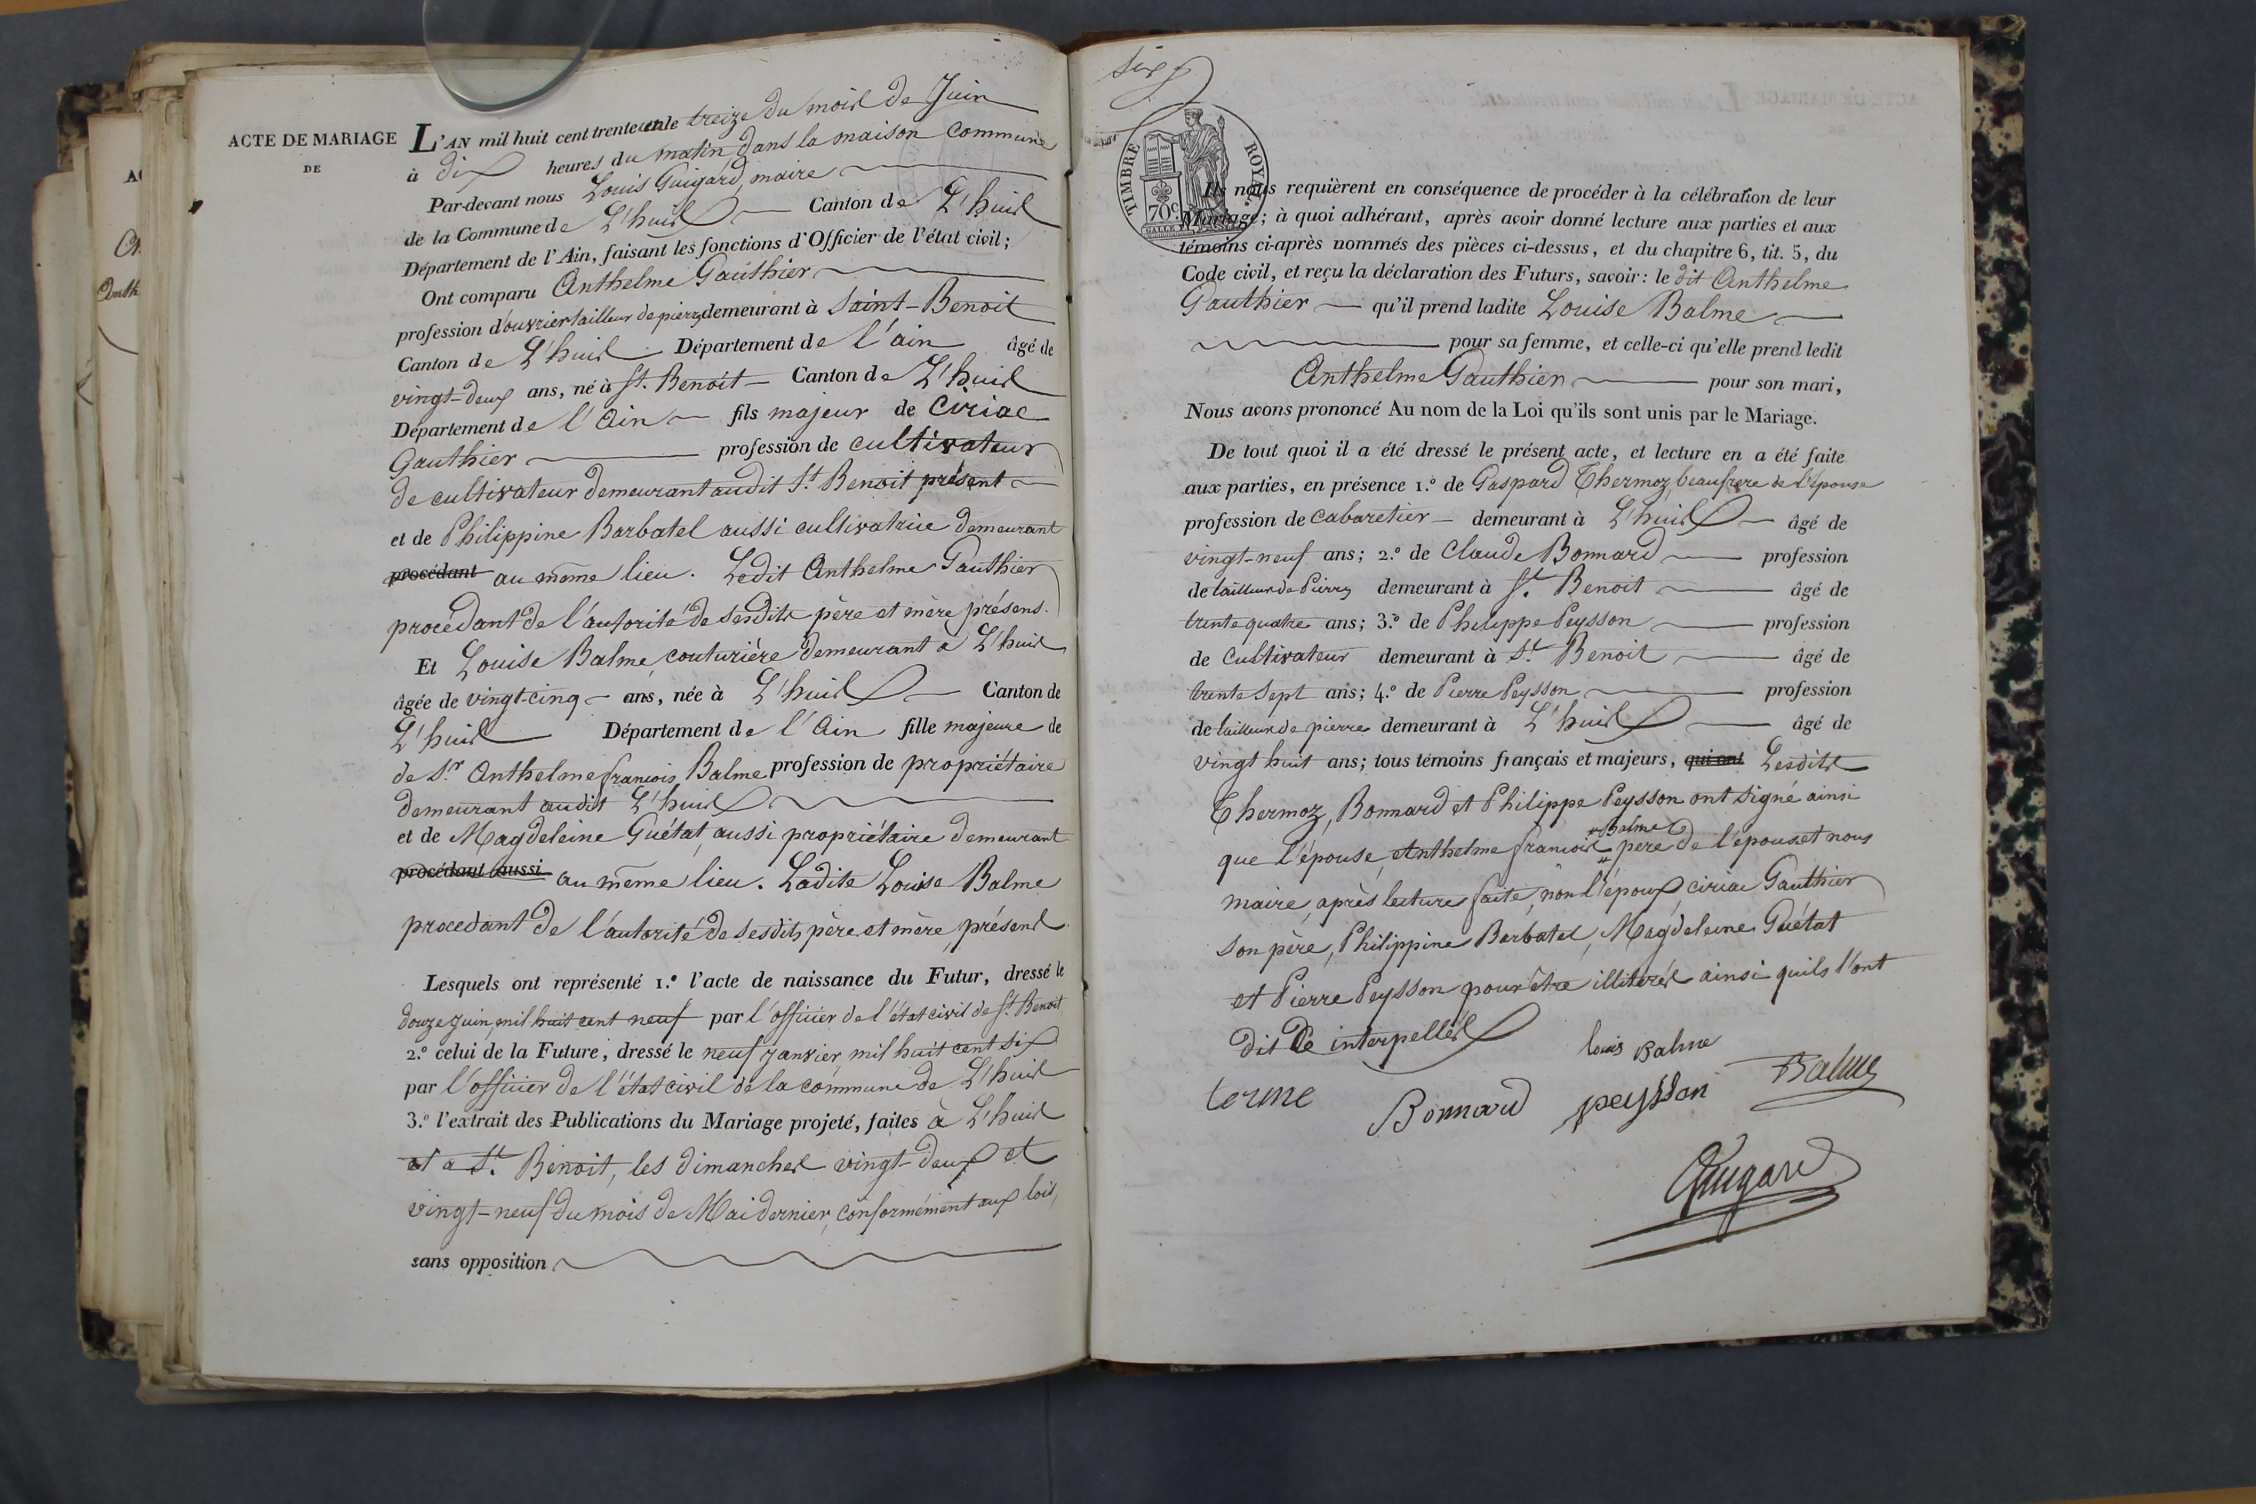 ACTE DE MARIAGE
DE
L'AN mil huit cent trente et un le treize du mois de Juin
à dix heures du matin, dans la maison commune
Par-devant nous Louis Guigard, maire
de la Commune de L'huis Canton de L'huis
Département de l'Ain, faisant les fonctions d'Officier de l'état civil;
Ont comparu Anthelme Gauthier
profession d'ouvrier tailleur de pierres demeurant à Saint-Benoit
Canton de L'huis Département de l'ain âgé de
vingt-deux ans, né à St. Benoit Canton de L'huis
Département de l'Ain fils majeur de Ciriac
Gauthier profession de cultivateur
de cultivateur demeurant audit St. Benoit présent
et de Philippine Barbatel aussi cultivatrice demeurant
procédant au même lieu. Ledit Anthelme Gauthier
procédant de l'autorité de sesdits père et mère présens.
Et Louise Balme, couturière demeurant à L'huis
âgée de vingt-cinq ans, née à L'huis Canton de
L'huis Département de l'Ain fille majeure de
de Sr. Anthelme françois Balme profession de propriétaire
demeurant audit L'huis
et de Magdeleine Guétat, aussi propriétaire demeurant
procédant aussi au même lieu. Ladite Louise Balme
procedant de l'autorité de sesdits père et mère, présens
Lesquels ont représenté 1.º l'acte de naissance du Futur, dressé le
douze juin mil huit cent neuf par l'officier de l'état civil de St. Benoit
2.º celui de la Future, dressé le neuf janvier mil huit cent six
par l'officier de l'état civil de la commune de L'huis
3.º l'extrait des Publications du Mariage projeté, faites à L'huis
et à St. Benoit, les dimanches vingt-deux et
vingt-neuf du mois de Mai dernier, conformément aux lois,
sans opposition
six
TIMBRE ROYAL
70c
Ils nous requièrent en conséquence de procéder à la célébration de leur
Mariage; à quoi adhérant, après avoir donné lecture aux parties et aux
témoins ci-après nommés des pièces ci-dessus, et du chapitre 6, tit. 5, du
Code civil, et reçu la déclaration des Futurs, savoir: le dit Anthelme
Gauthier qu'il prend ladite Louise Balme
pour sa femme, et celle-ci qu'elle prend ledit
Anthelme Gauthier pour son mari,
Nous avons prononcé Au nom de la Loi qu'ils sont unis par le Mariage.
De tout quoi il a été dressé le présent acte, et lecture en a été faite
aux parties, en présence 1.º de Gaspard Thermoz, beaufrere de l'épouse
profession de cabaretier demeurant à L'huis âgé de
vingt-neuf ans; 2.º de Claude Bonnard profession
de tailleur de Pierres demeurant à St. Benoit âgé de
trente quatre ans; 3.º de Philippe Peysson profession
de Cultivateur demeurant à St. Benoit âgé de
trente sept ans; 4.º de Pierre Peysson profession
de tailleur de pierres demeurant à L'huis âgé de
vingt huit ans; tous témoins français et majeurs, qui ont Lesdits
Thermoz, Bonnard et Philippe Peysson ont signé ainsi
que l'épouse, Anthelme françois Balme père de l'épouse et nous
maire, après lecture faite, non l'époux, ciriac Gauthier
son père, Philippine Barbatel, Magdeleine Guétat
et Pierre Peysson pour être illitérés ainsi quils l'ont
dit De interpellés
louis Balme
terme Bonnard peysson Balme
Guigard